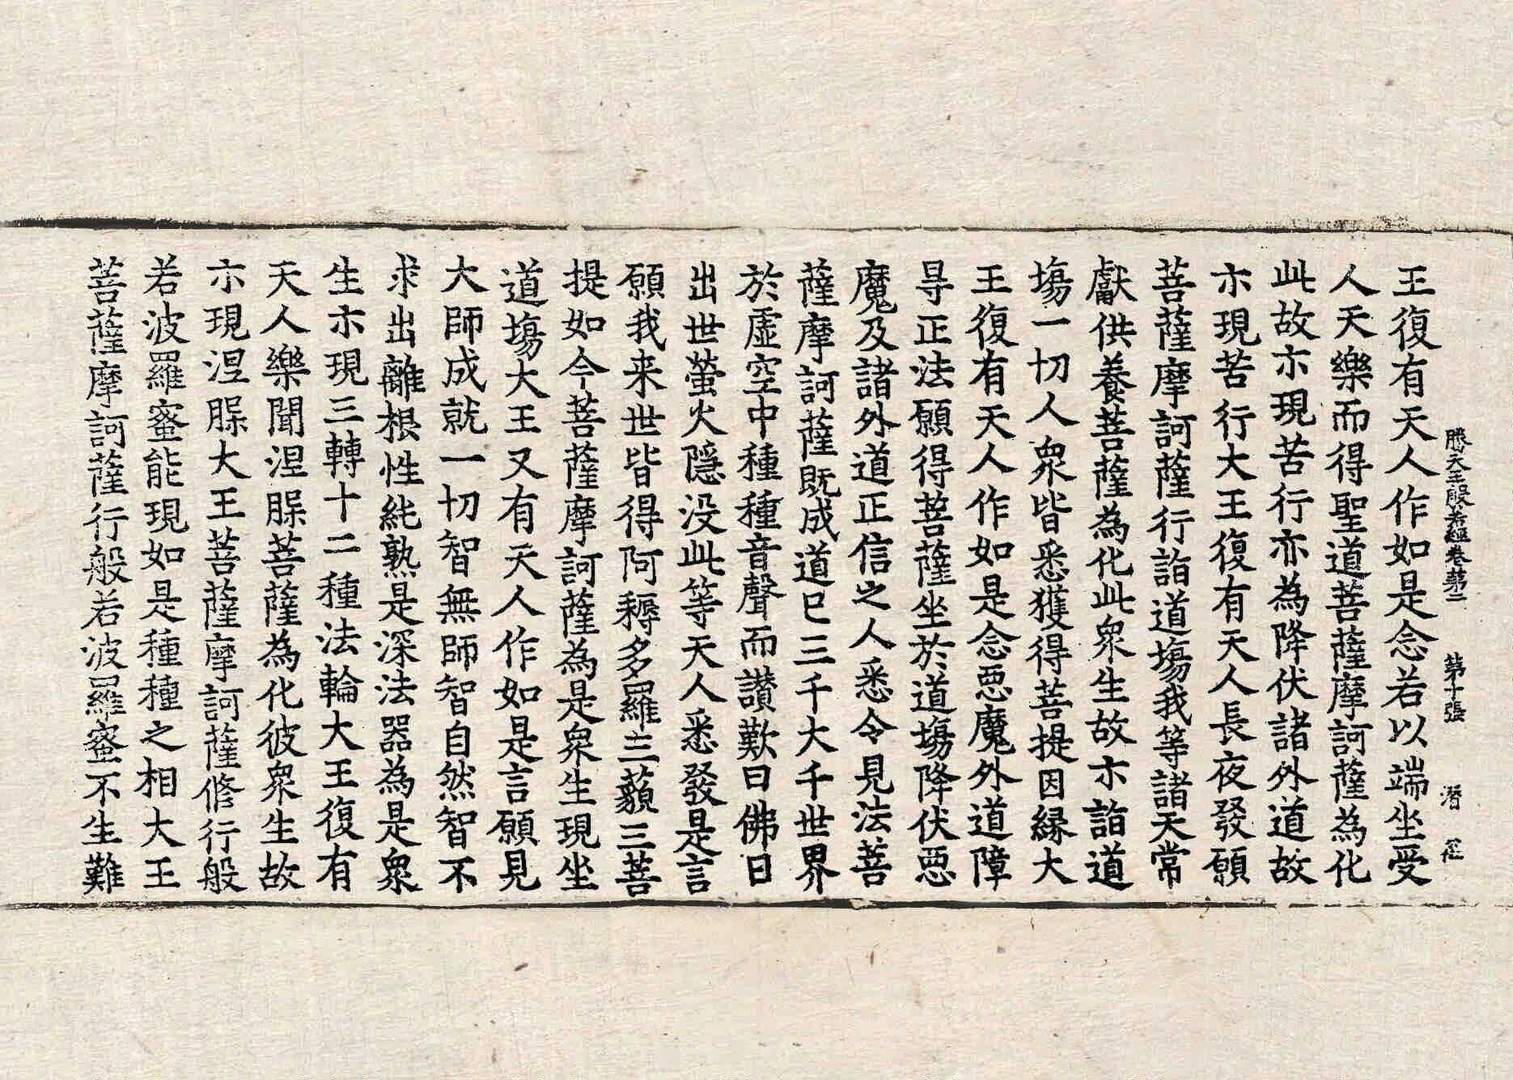 勝天王般若經卷第二　第十張　潛
王復有天人作如是念若以端坐受
人天樂而得聖道菩薩摩訶薩為化
此故亦現苦行亦為降伏諸外道故
亦現苦行大王復有天人長夜發願
菩薩摩訶薩行詣道塲我等諸天常
獻供養菩薩為化此衆生故亦詣道
塲一切人衆皆悉獲得菩提因縁大
王復有天人作如是念惡魔外道障
㝵正法願得菩薩坐於道塲降伏惡
魔及諸外道正信之人悉令見法菩
薩摩訶薩既成道已三千大千世界
於虛空中種種音聲而讃歎曰佛日
出世螢火隱没此等天人悉發是言
願我来世皆得阿耨多羅三藐三菩
提如今菩薩摩訶薩為是衆生現坐
道塲大王又有天人作如是言願見
大師成就一切智無師智自然智不
求出離根性純熟是深法器為是衆
生亦現三轉十二種法輪大王復有
天人樂聞涅槃菩薩為化彼衆生故
亦現涅槃大王菩薩摩訶薩修行般
若波羅蜜能現如是種種之相大王
菩薩摩訶薩行般若波羅蜜不生難